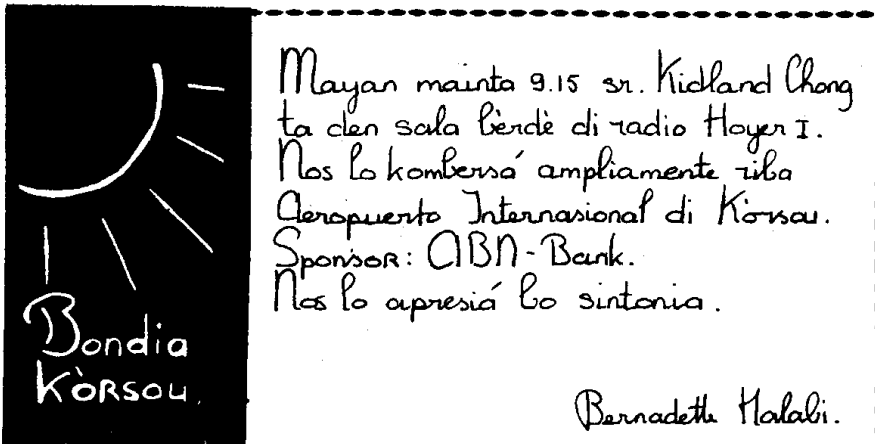 Bondia
Kòrsou.
Mayan mainta 9.15 sr. Kidland Chong
ta den sala bèrdè di radio Hoyer I.
Nos lo kombersá ampliamente riba
Aeropuerto Internasional di Kòrsou.
Sponsor: ABN-Bank.
Nos lo apresiá bo sintonia.
Bernadette Halabi.